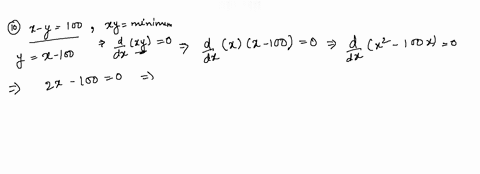 ⑩ x-y = 100 , xy = minimum
y = x-100 ⇒ d/dx (xy) = 0 ⇒ d/dx (x)(x-100) = 0 ⇒ d/dx (x² - 100x) = 0
⇒ 2x - 100 = 0 ⇒